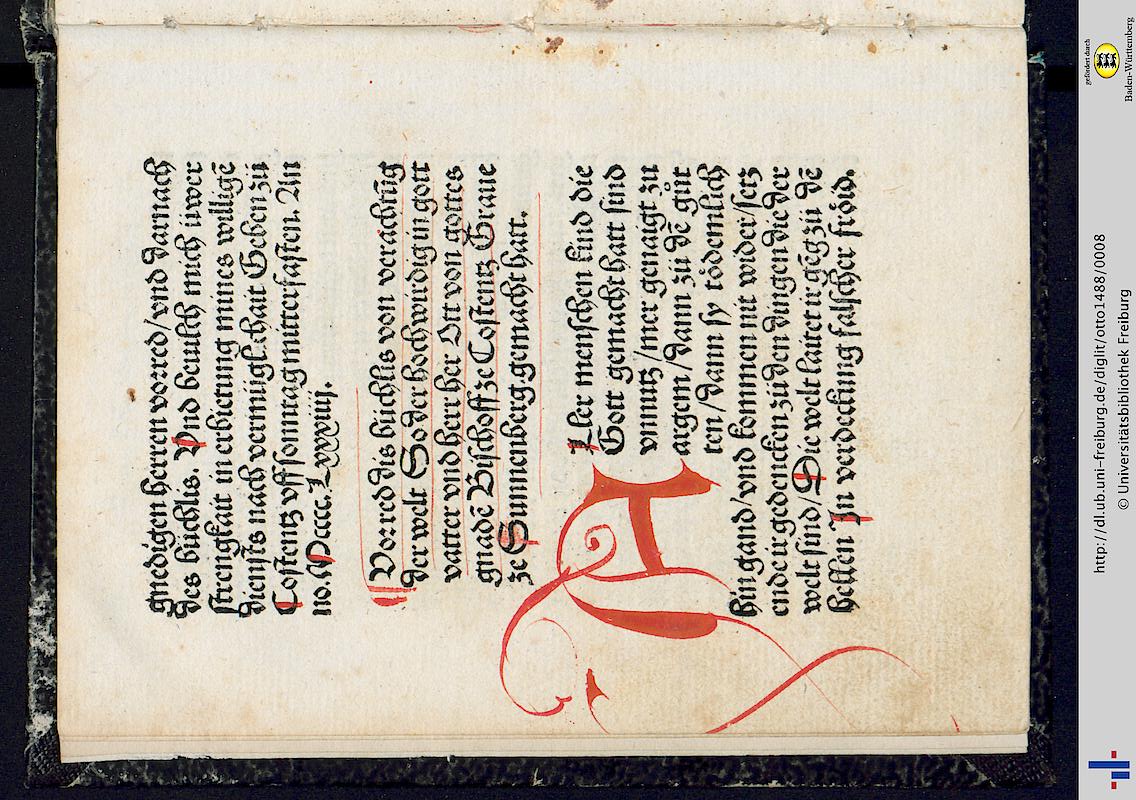 gnedigen herren vorred/vnd darnach
des büchlis. Vnd beuilch mich üwer
strengkait in erbietung mines willigē
diensts nach vermüglichait Geben zů
Costentz vff sonntag mitterfasten. An
no. Mcccc. Lxxiiij.
Vorred dis büchlis von verachtūg
der welt So der hochwirdig in gott
vatter vnd herr her Ott von gottes
gnadē Bischoff ze Costentz Graue
ze Sunnenberg gemacht hatt.
ALler menschen kind die
Gott gemacht hatt sind
vnnutz/mer genaigt zu
argem/dann zů dē gůt
ten/dann sy tödemlich
hin gand/vnd kommen nit wider/setz
end eir gedencken zů den dingen die der
welt sind/Die welt laitet ir geg zů dē
hellen In verdeckung falscher fröid.
gefördert durch
Baden-Württemberg
http://dl.ub.uni-freiburg.de/diglit/otto1488/0008
© Universitätsbibliothek Freiburg